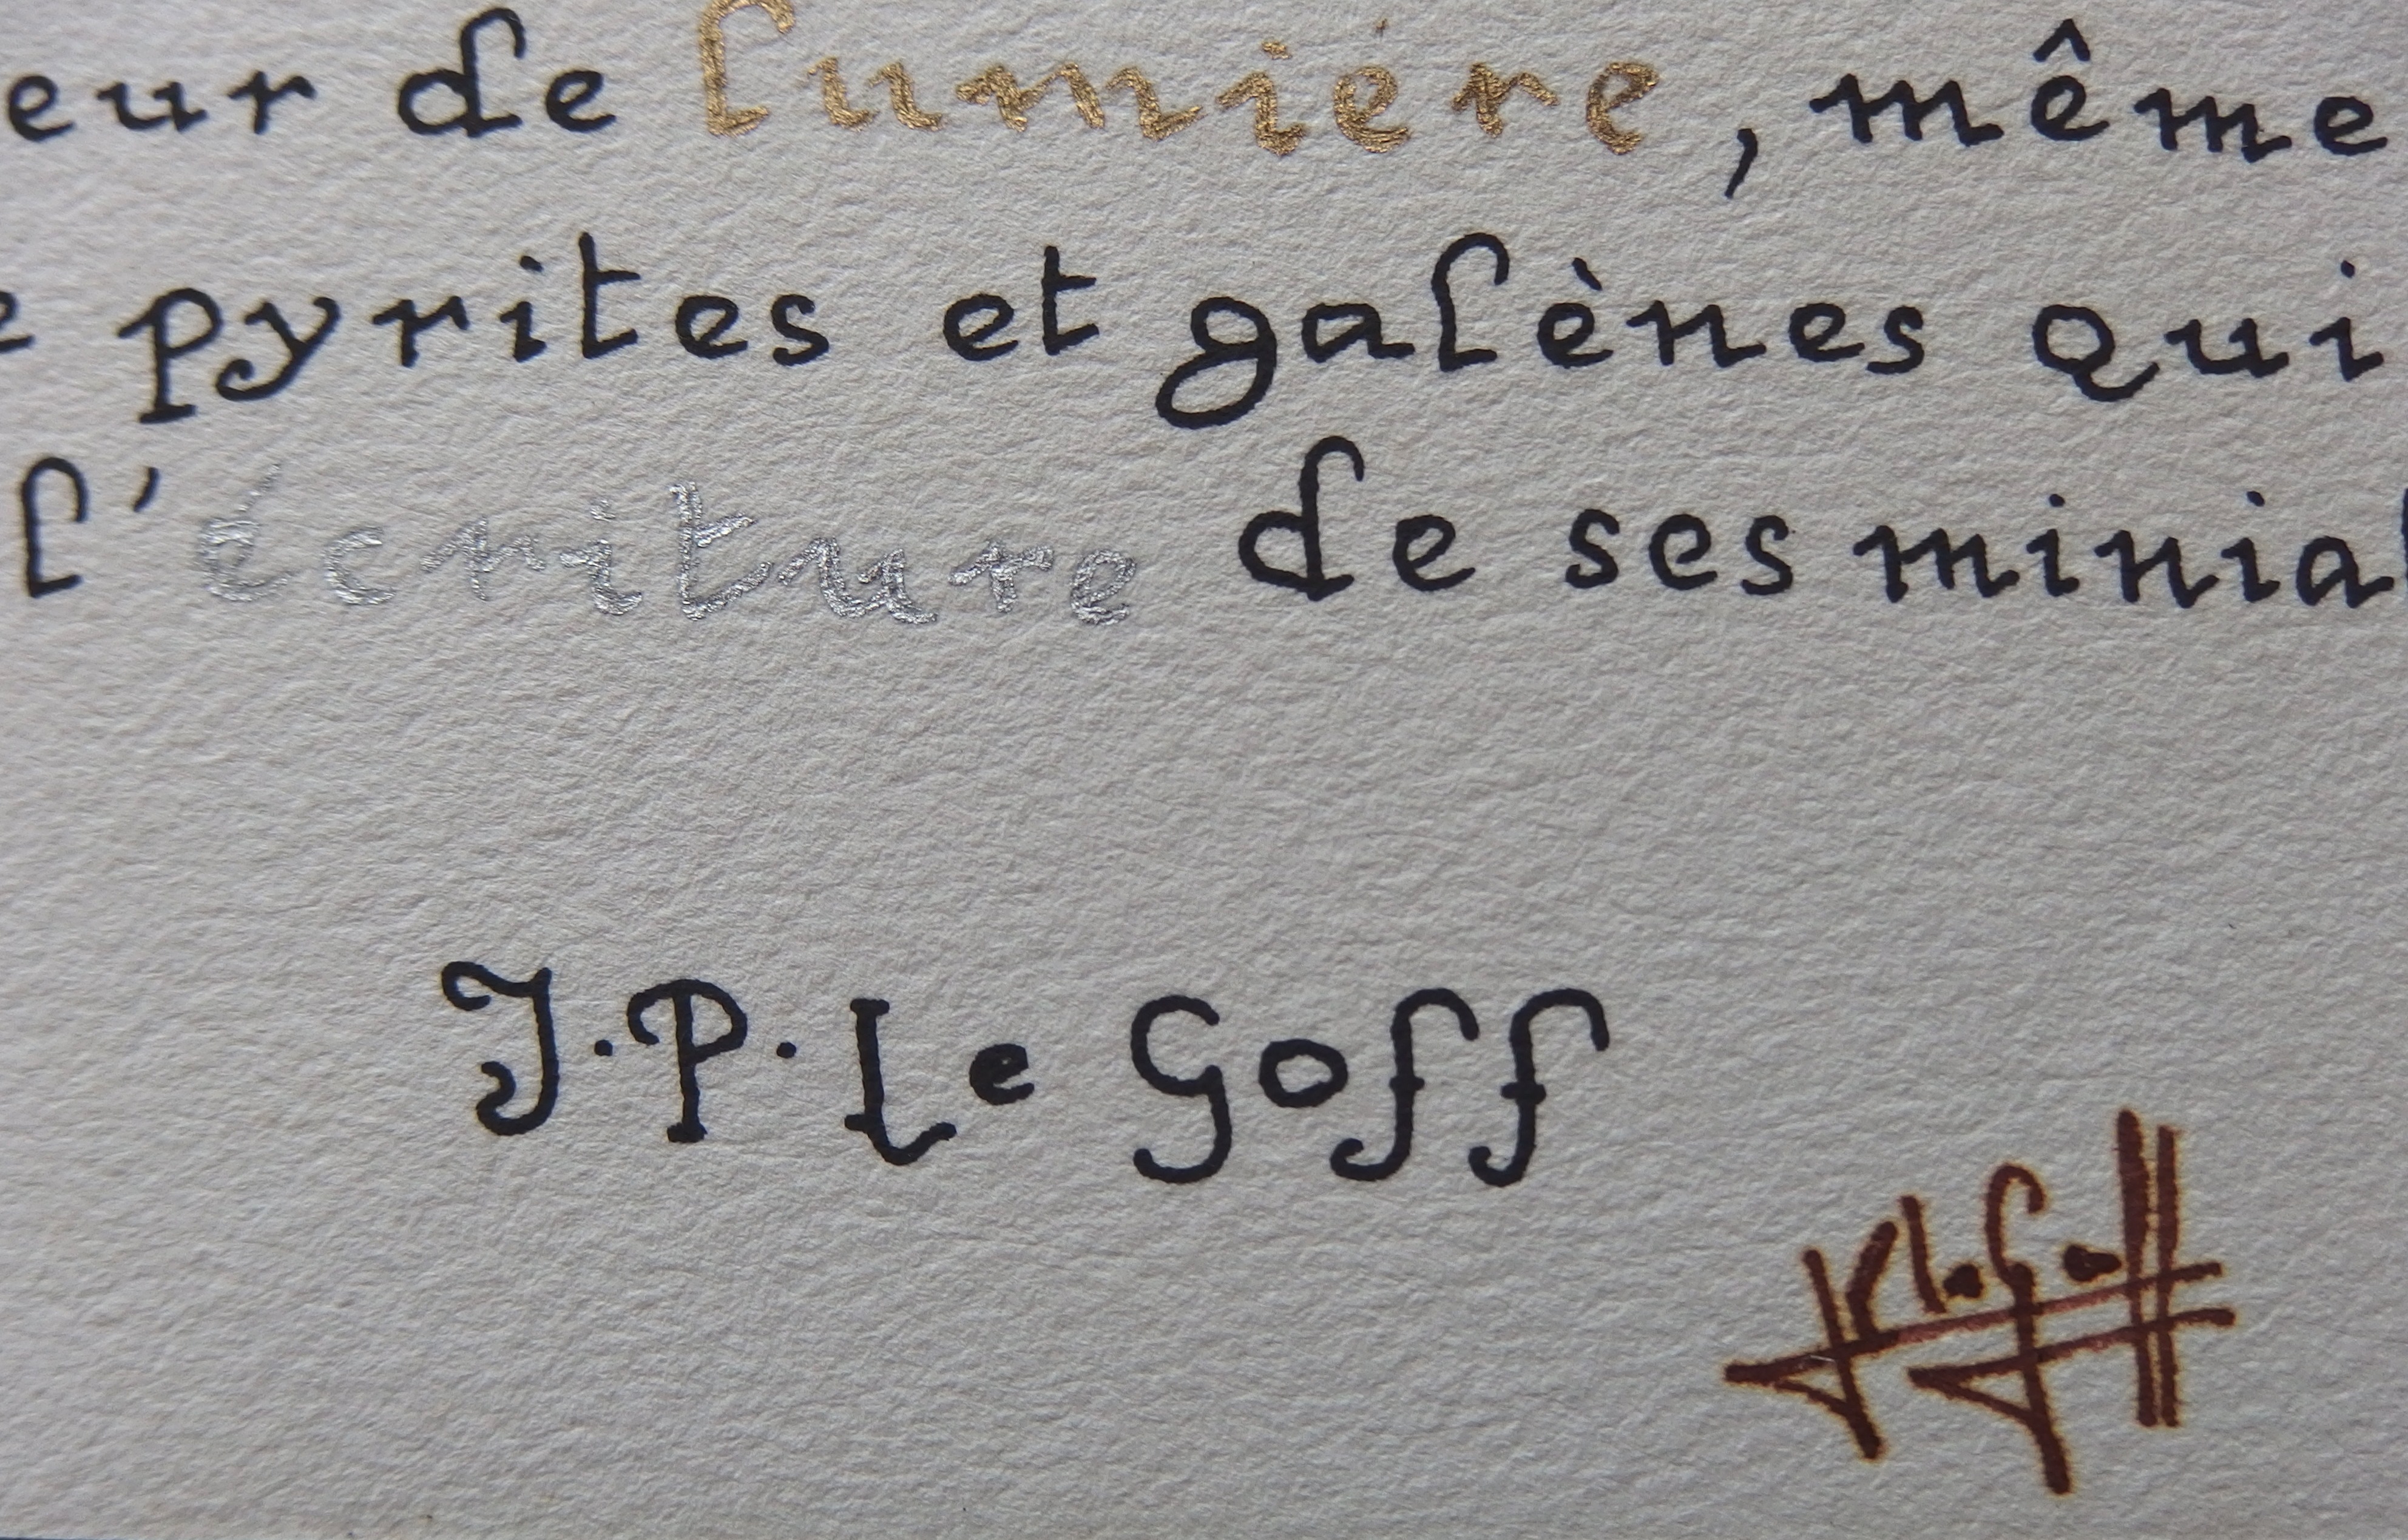 eur de lumière, même
e pyrites et galènes qui
l'écriture de ses minia
J.P. Le Goff
JP le Goff